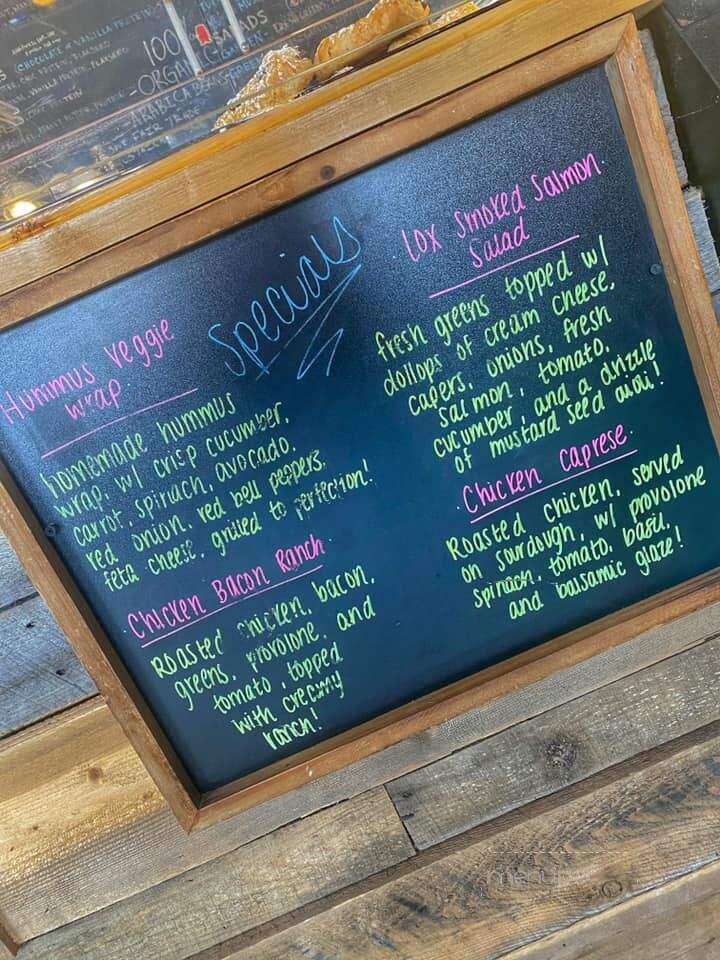 CHOCOLATE
VANILLA PROTEIN
100%
ORGANIC
ARABICA
SALADS
Specials
Hummus Veggie
Wrap
homemade hummus
wrap, w/ crisp cucumber,
carrot, spinach, avocado,
red onion, red bell peppers,
feta cheese, grilled to perfection!
Chicken Bacon Ranch
Roasted chicken, bacon,
greens, provolone, and
tomato, topped
with creamy
ranch!
Lox Smoked Salmon
Salad
fresh greens topped w/
dollops of cream cheese,
capers, onions, fresh
salmon, tomato,
cucumber, and a drizzle
of mustard seed aioli!
Chicken Caprese
Roasted chicken, served
on sourdough, w/ provolone
spinach, tomato, basil,
and balsamic glaze!